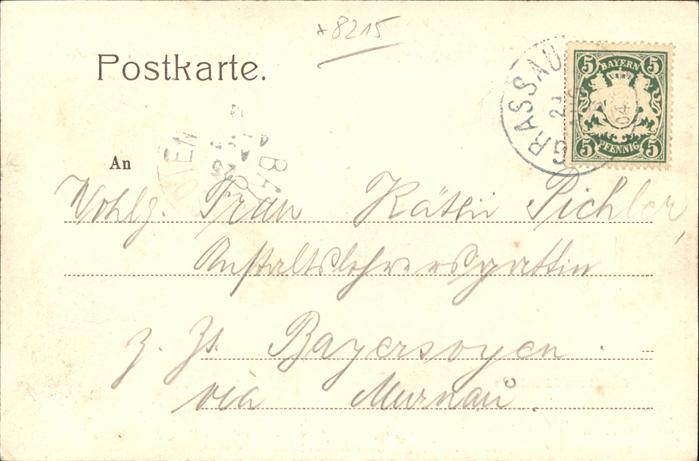 *8215
Postkarte.
GRASSAU
5 BAYERN 5
5 PFENNIG 5
An
Wohlg. Frau Kätti Pichler,
Anstaltslehrersgattin
z. Zt. Bayersoyen.
via Murnau.